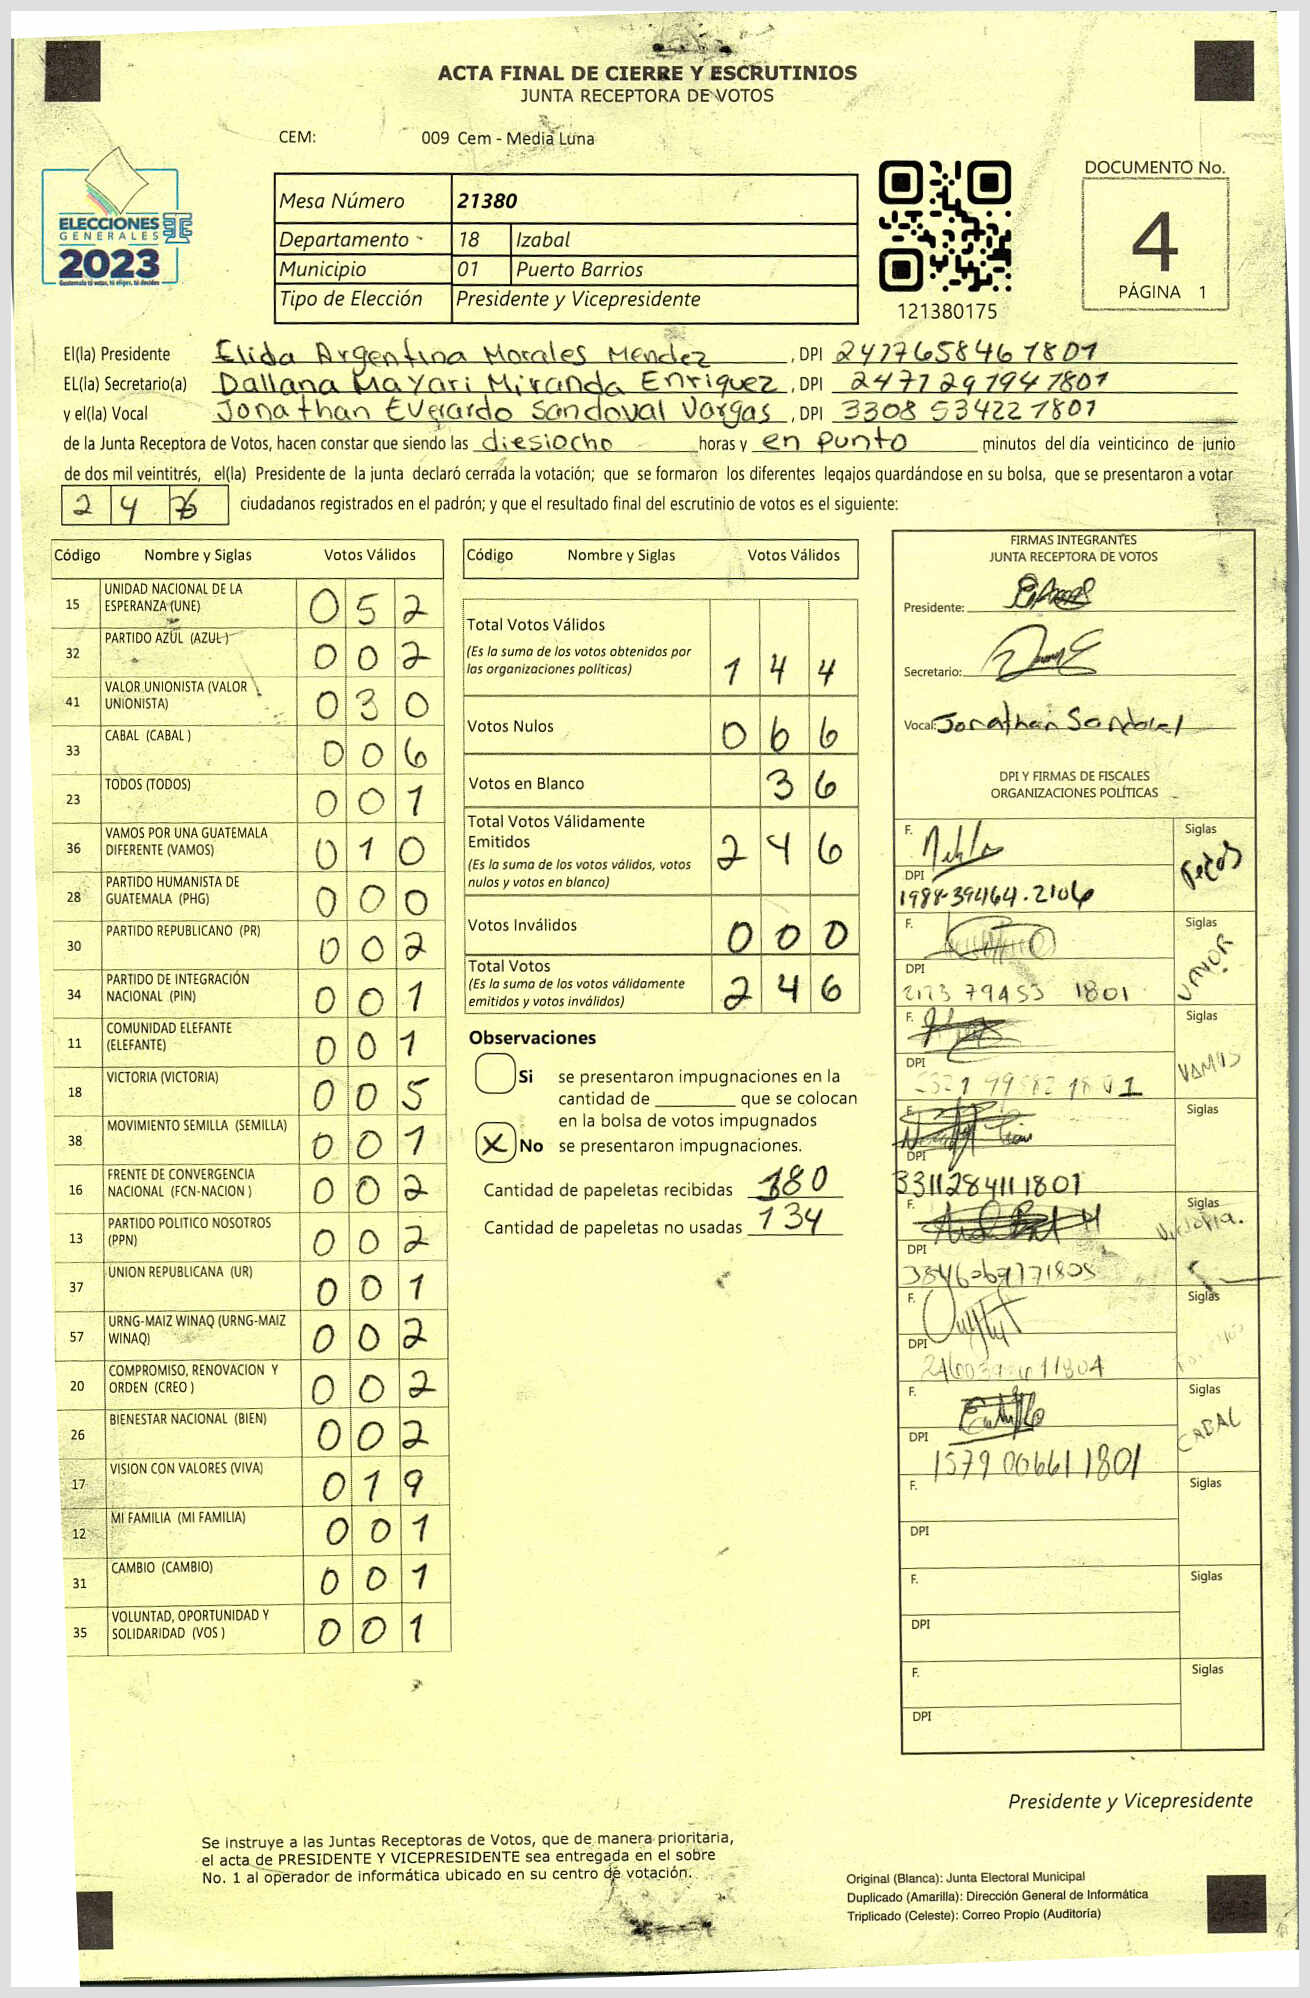 ACTA FINAL DE CIERRE Y ESCRUTINIOS
JUNTA RECEPTORA DE VOTOS
CEM: 009 Cem - Media Luna
ELECCIONES
GENERALES
2023
Guatemala tú votas, tú eliges, tú decides
Mesa Número 21380
Departamento 18 Izabal
Municipio 01 Puerto Barrios
Tipo de Elección Presidente y Vicepresidente
121380175
DOCUMENTO No.
4
PÁGINA 1
El(la) Presidente Elida Argentina Morales Mendez, DPI 2417658461801
EL(la) Secretario(a) Dallana Mayari Miranda Enriquez, DPI 2471291941801
y el(la) Vocal Jonathan Everardo Sandoval Vargas, DPI 3308 534221801
de la Junta Receptora de Votos, hacen constar que siendo las diesiocho horas y en punto minutos del día veinticinco de junio
de dos mil veintitrés, el(la) Presidente de la junta declaró cerrada la votación; que se formaron los diferentes legajos guardándose en su bolsa, que se presentaron a votar
2 4 6 ciudadanos registrados en el padrón; y que el resultado final del escrutinio de votos es el siguiente:
Código Nombre y Siglas Votos Válidos
15 UNIDAD NACIONAL DE LA ESPERANZA (UNE) 0 5 2
32 PARTIDO AZUL (AZUL) 0 0 2
41 VALOR UNIONISTA (VALOR UNIONISTA) 0 3 0
33 CABAL (CABAL ) 0 0 6
23 TODOS (TODOS) 0 0 1
36 VAMOS POR UNA GUATEMALA DIFERENTE (VAMOS) 0 1 0
28 PARTIDO HUMANISTA DE GUATEMALA (PHG) 0 0 0
30 PARTIDO REPUBLICANO (PR) 0 0 2
34 PARTIDO DE INTEGRACIÓN NACIONAL (PIN) 0 0 1
11 COMUNIDAD ELEFANTE (ELEFANTE) 0 0 1
18 VICTORIA (VICTORIA) 0 0 5
38 MOVIMIENTO SEMILLA (SEMILLA) 0 0 1
16 FRENTE DE CONVERGENCIA NACIONAL (FCN-NACION ) 0 0 2
13 PARTIDO POLITICO NOSOTROS (PPN) 0 0 2
37 UNION REPUBLICANA (UR) 0 0 1
57 URNG-MAIZ WINAQ (URNG-MAIZ WINAQ) 0 0 2
20 COMPROMISO, RENOVACION Y ORDEN (CREO ) 0 0 2
26 BIENESTAR NACIONAL (BIEN) 0 0 2
17 VISION CON VALORES (VIVA) 0 1 9
12 MI FAMILIA (MI FAMILIA) 0 0 1
31 CAMBIO (CAMBIO) 0 0 1
35 VOLUNTAD, OPORTUNIDAD Y SOLIDARIDAD (VOS ) 0 0 1
Código Nombre y Siglas Votos Válidos
Total Votos Válidos
(Es la suma de los votos obtenidos por las organizaciones políticas) 1 4 4
Votos Nulos 0 6 6
Votos en Blanco 3 6
Total Votos Válidamente Emitidos
(Es la suma de los votos válidos, votos nulos y votos en blanco) 2 4 6
Votos Inválidos 0 0 0
Total Votos
(Es la suma de los votos válidamente emitidos y votos inválidos) 2 4 6
Observaciones
Si se presentaron impugnaciones en la
cantidad de ________ que se colocan
en la bolsa de votos impugnados
X No se presentaron impugnaciones.
Cantidad de papeletas recibidas 380
Cantidad de papeletas no usadas 134
FIRMAS INTEGRANTES
JUNTA RECEPTORA DE VOTOS
Presidente:
Secretario:
Vocal: Jonathan Sandoval
DPI Y FIRMAS DE FISCALES
ORGANIZACIONES POLÍTICAS
F. Siglas
DPI
1988-39464.2106
F. Siglas VALOR
DPI
2173 79453 1801
F. Siglas VAMOS
DPI
F. Siglas
DPI
3311284111801
F. Siglas Victoria.
DPI
F. Siglas
DPI
F. Siglas CABAL
DPI
1579 00661 1801
F. Siglas
DPI
F. Siglas
DPI
F. Siglas
DPI
Presidente y Vicepresidente
Se instruye a las Juntas Receptoras de Votos, que de manera prioritaria,
el acta de PRESIDENTE Y VICEPRESIDENTE sea entregada en el sobre
No. 1 al operador de informática ubicado en su centro de votación.
Original (Blanca): Junta Electoral Municipal
Duplicado (Amarilla): Dirección General de Informática
Triplicado (Celeste): Correo Propio (Auditoría)